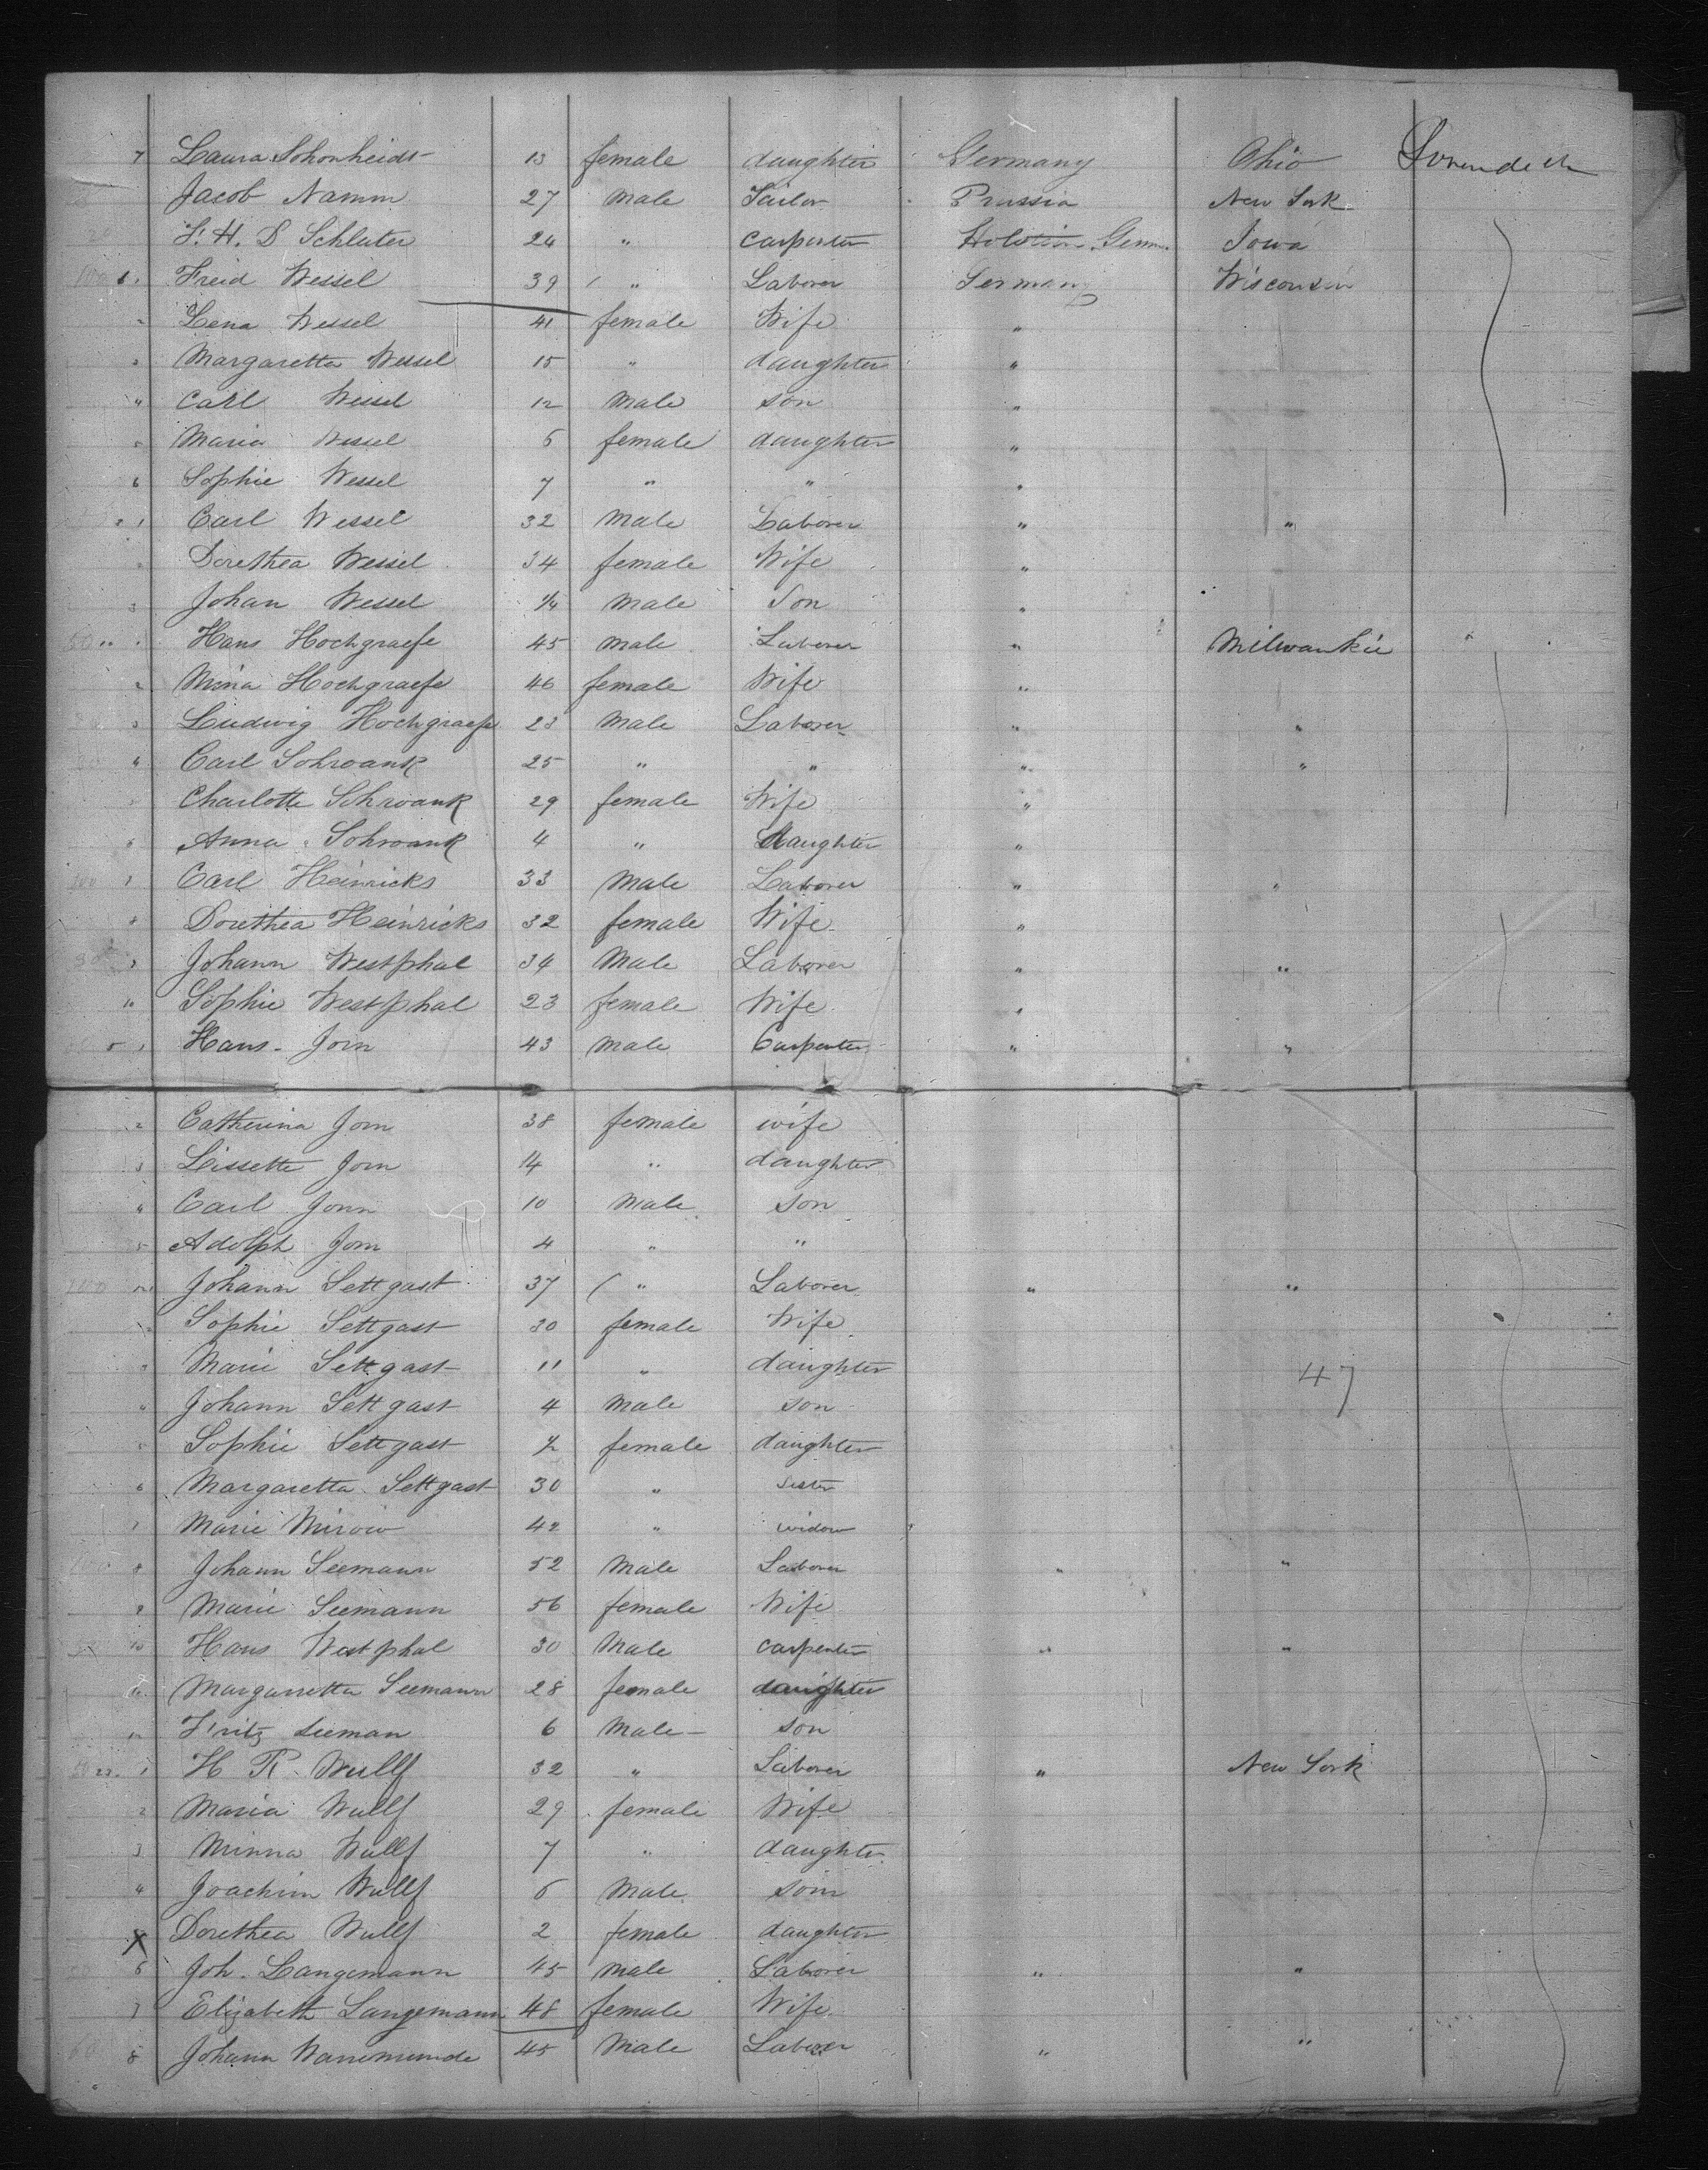 7 Laura Schonheidt 13 female daughter Germany Ohio
Jacob Namm 27 Male Tailor Prussia New York
F. H. D Schluter 24 " Carpenter Holstein Germ. Iowa
1 Freid Wessel 39 " Laborer Germany Wisconsin
2 Lena Wessel 41 female Wife "
3 Margaretta Wessel 15 " daughter "
4 Carl Wessel 12 Male son "
5 Maria Wessel 6 female daughter "
6 Sophie Wessel 7 " " "
2 1 Carl Wessel 32 Male Laborer " "
2 Dorethea Wessel 34 female Wife "
3 Johan Wessel 1/4 Male Son "
Hans Hochgraefe 45 Male Laborer " Milwaukie
2 Mina Hochgraefe 46 female Wife "
3 Ludwig Hochgraefe 23 Male Laborer " "
4 Carl Schwank 25 " " " "
5 Charlotte Schwank 29 female Wife "
6 Anna Schwank 4 " daughter "
Carl Heinricks 33 Male Laborer " "
Dorethea Heinricks 32 female Wife "
Johann Westphal 34 Male Laborer " "
10 Sophie Westphal 23 female Wife "
5 1 Hans Jorn 43 Male Carpenter " "
2 Catherina Jorn 38 female wife
3 Lissette Jorn 14 " daughter
4 Carl Jorn 10 Male son
5 Adolph Jorn 4 " "
Johann Settgast 37 " Laborer " "
Sophie Settgast 30 female Wife
3 Marie Settgast 11 " daughter 47
4 Johann Settgast 4 Male son
5 Sophie Settgast 1/2 female daughter
6 Margaretta Settgast 30 " sister
7 Marie Mirow 42 " widow
8 Johann Seemann 52 Male Laborer " "
9 Marie Seemann 56 female Wife
10 Hans Westphal 30 Male carpenter " "
11 Margarretta Seemann 28 female daughter
12 Fritz Seeman 6 Male son
1 H R Wullf 32 " Laborer " New York
2 Maria Wullf 29 female Wife
3 Minna Wullf 7 " daughter
4 Joachim Wullf 6 Male son
X Dorethea Wullf 2 female daughter
6 Joh. Langemann 45 Male Laborer " "
7 Elizabeth Langemann 48 female Wife
8 Johann Warremunde 45 Male Laborer " "